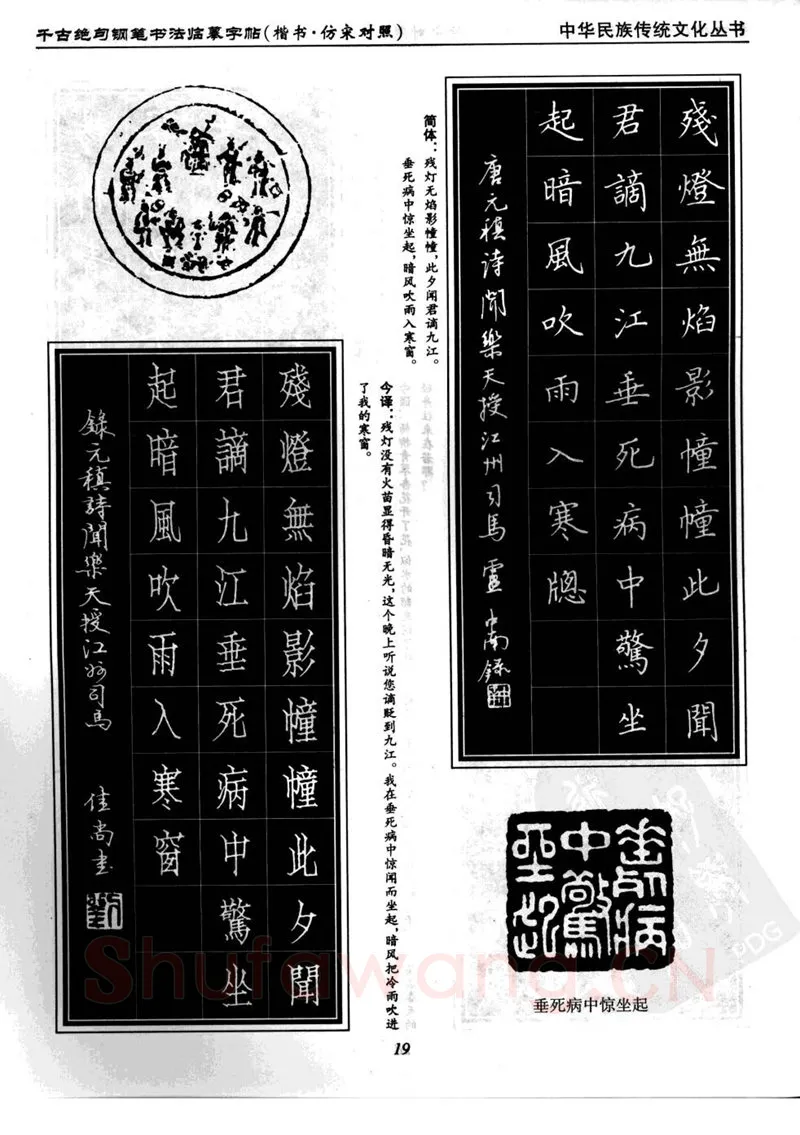 千古绝句钢笔书法临摹字帖(楷书·仿宋对照)
中华民族传统文化丛书
殘燈無焰影幢幢此夕聞
君謫九江垂死病中驚坐
起暗風吹雨入寒牕
唐元稹詩聞樂天授江州司馬 靈尚錄
简体：残灯无焰影幢幢，此夕闻君谪九江。
垂死病中惊坐起，暗风吹雨入寒窗。
今译：残灯没有火苗显得昏暗无光，这个晚上听说您谪贬到九江。我在垂死病中惊闻而坐起，暗风把冷雨吹进
了我的寒窗。
殘燈無焰影幢幢此夕聞
君謫九江垂死病中驚坐
起暗風吹雨入寒窗
錄元稹詩聞樂天授江州司馬 佳尚书
垂死病中驚坐起
垂死病中惊坐起
19
Shufawang.CN
PDG